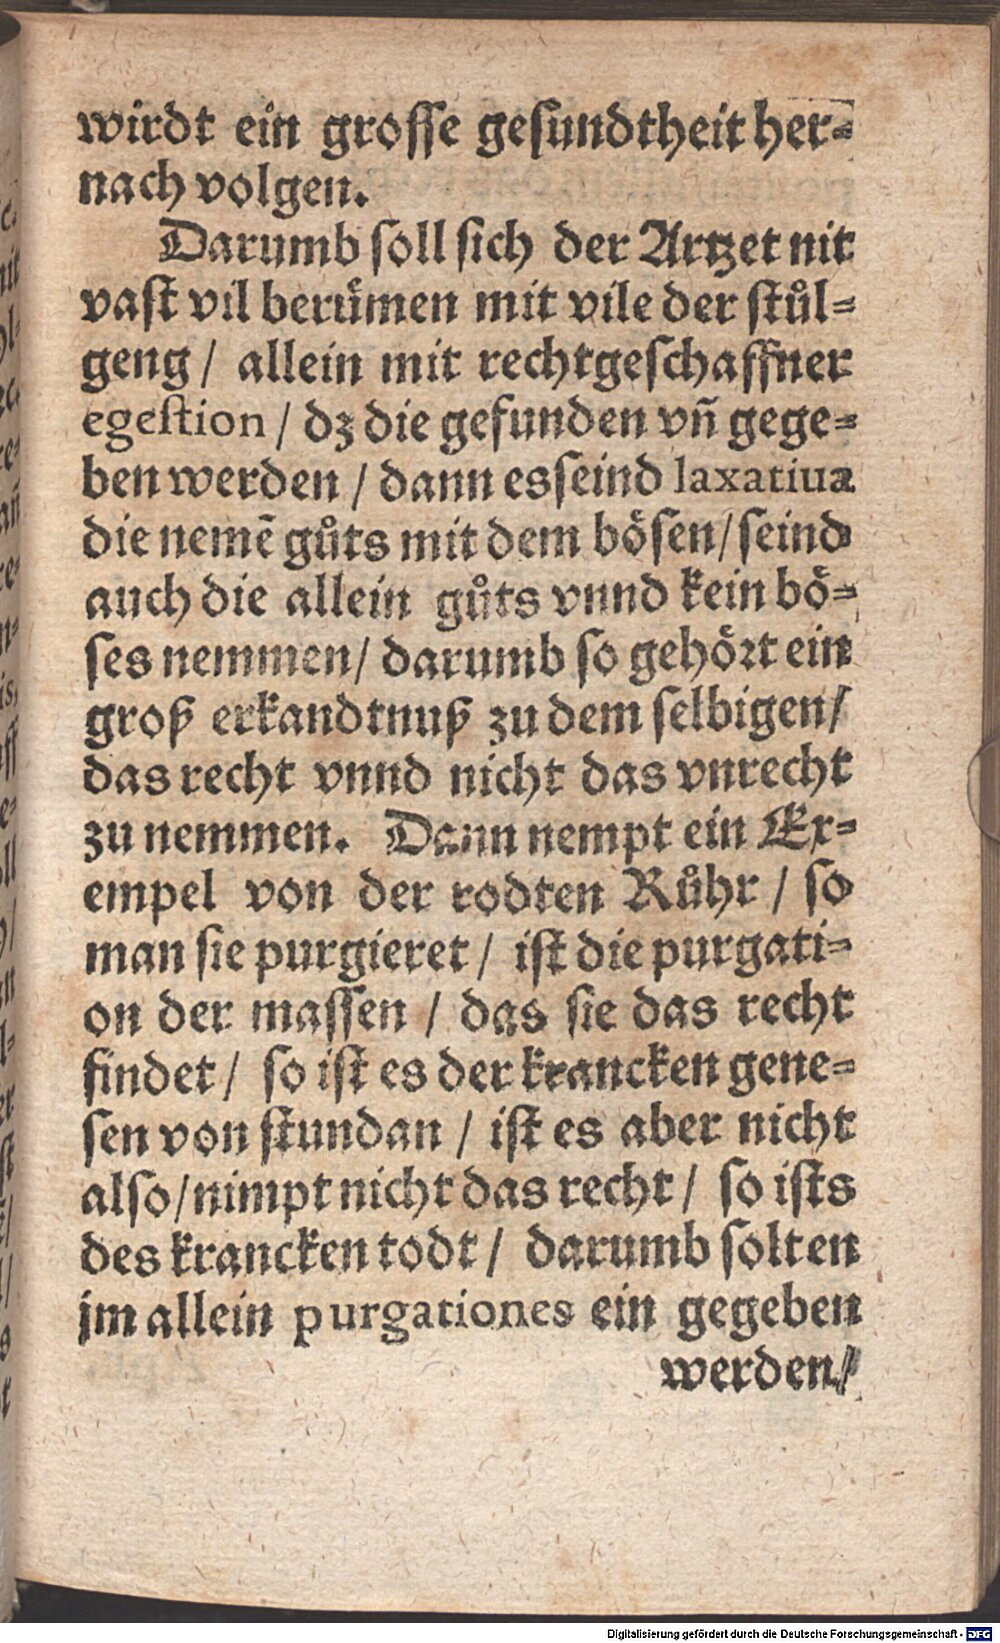 wirdt ein grosse gesundtheit her⸗
nach volgen.
Darumb soll sich der Artzet nit
vast vil berůmen mit vile der stůl⸗
geng / allein mit rechtgeschaffner
egestion / dz die gefunden vñ gege⸗
ben werden / dann es seind laxatiua
die nemẽ gůts mit dem bösen / seind
auch die allein gůts vnnd kein bö⸗
ses nemmen / darumb so gehört ein
groß erkandtnuß zu dem selbigen /
das recht vnnd nicht das vnrecht
zu nemmen. Dann nempt ein Ex⸗
empel von der rodten Růhr / so
man sie purgieret / ist die purgati⸗
on der massen / das sie das recht
findet / so ist es der krancken gene⸗
sen von stundan / ist es aber nicht
also / nimpt nicht das recht / so ists
des krancken todt / darumb solten
jm allein purgationes ein gegeben
werden /
Digitalisierung gefördert durch die Deutsche Forschungsgemeinschaft - DFG